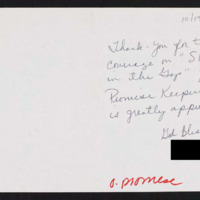 10/1
Thank-you for t
coverage on "S
in the Gap"
Promise Keeper
is greatly appre
God Bles
O. promise